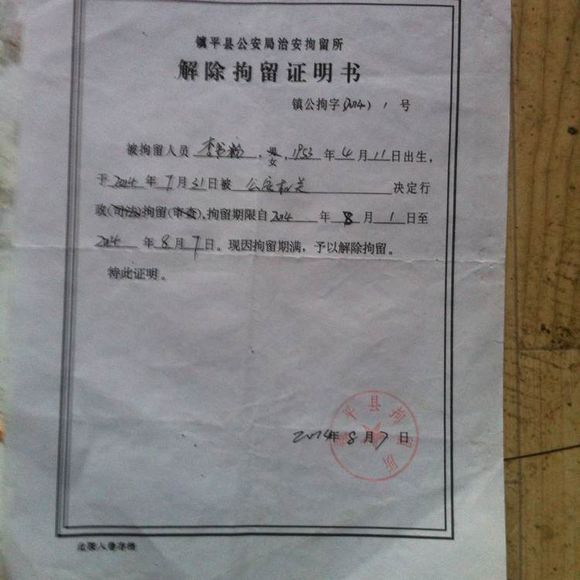 镇平县公安局治安拘留所
解除拘留证明书
镇公拘字(2014) 1 号
被拘留人员 李 , 男 , 1953 年 4 月 11 日出生,
女
于 2014 年 7 月 31 日被 公安机关 决定行
政(司法)拘留(审查),拘留期限自 2014 年 8 月 1 日至
2014 年 8 月 7 日。现因拘留期满,予以解除拘留。
特此证明。
镇平县拘留所
2014年 8 月 7 日